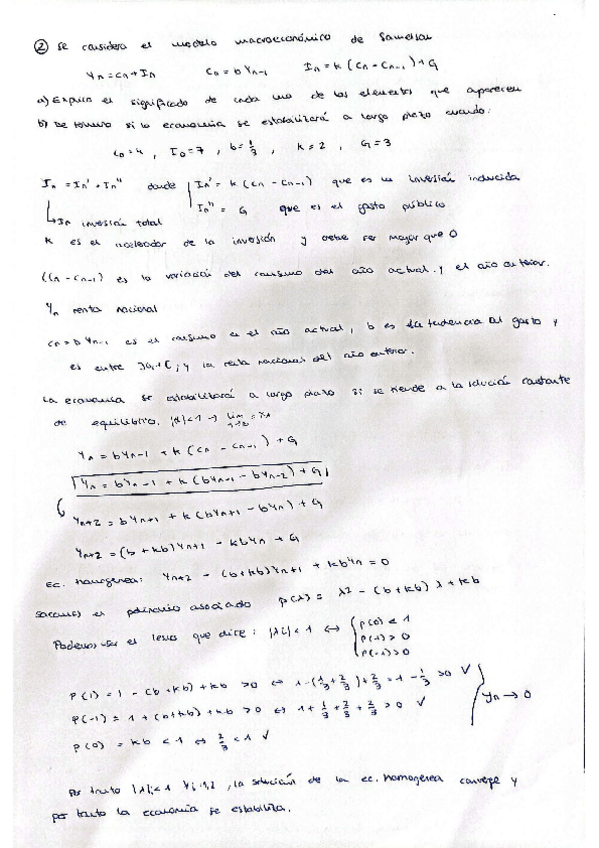 ② Se considera el modelo macroeconómico de Samuelson
Yn = Cn + In Cn = bYn-1 In = k (Cn - Cn-1) + G
a) Explica el significado de cada uno de los elementos que aparecen
b) Determina si la economía se estabilizará a largo plazo cuando:
C0 = 4 , I0 = 7 , b = 1/3 , k = 2 , G = 3
In = In' + In'' donde In' = k (Cn - Cn-1) que es la inversión inducida
↳ In inversión total In'' = G que es el gasto público
k es el acelerador de la inversión y debe ser mayor que 0
(Cn - Cn-1) es la variación del consumo del año actual y el año anterior.
Yn renta nacional
Cn = bYn-1 es el consumo en el año actual, b es la tendencia al gasto y
es entre ]0,1[; y la renta nacional del año anterior.
La economía se estabilizará a largo plazo si se tiende a la solución constante
de equilibrio. |λ| < 1 → lim
Yn = bYn-1 + k (Cn - Cn-1) + G
Yn = bYn-1 + k (bYn-1 - bYn-2) + G
Yn+2 = bYn+1 + k (bYn+1 - bYn) + G
Yn+2 = (b + kb)Yn+1 - kbYn + G
Ec. homogénea: Yn+2 - (b+kb)Yn+1 + kbYn = 0
sacamos el polinomio asociado p(λ) = λ2 - (b+kb) λ + kb
Podemos usar el lema que dice: |λi| < 1 ↔ { p(0) < 1
p(1) > 0
p(-1) > 0
p(1) = 1 - (b+kb) + kb > 0 ⇔ 1 - (1/3 + 2/3) + 2/3 = 1 - 1/3 > 0 ✓
p(-1) = 1 + (b+kb) + kb > 0 ⇔ 1 + 1/3 + 2/3 + 2/3 > 0 ✓ yn → 0
p(0) = kb < 1 ⇔ 2/3 < 1 ✓
Por tanto |λi| < 1 ∀i=1,2 , la solución de la ec. homogénea converge y
por tanto la economía se estabiliza.